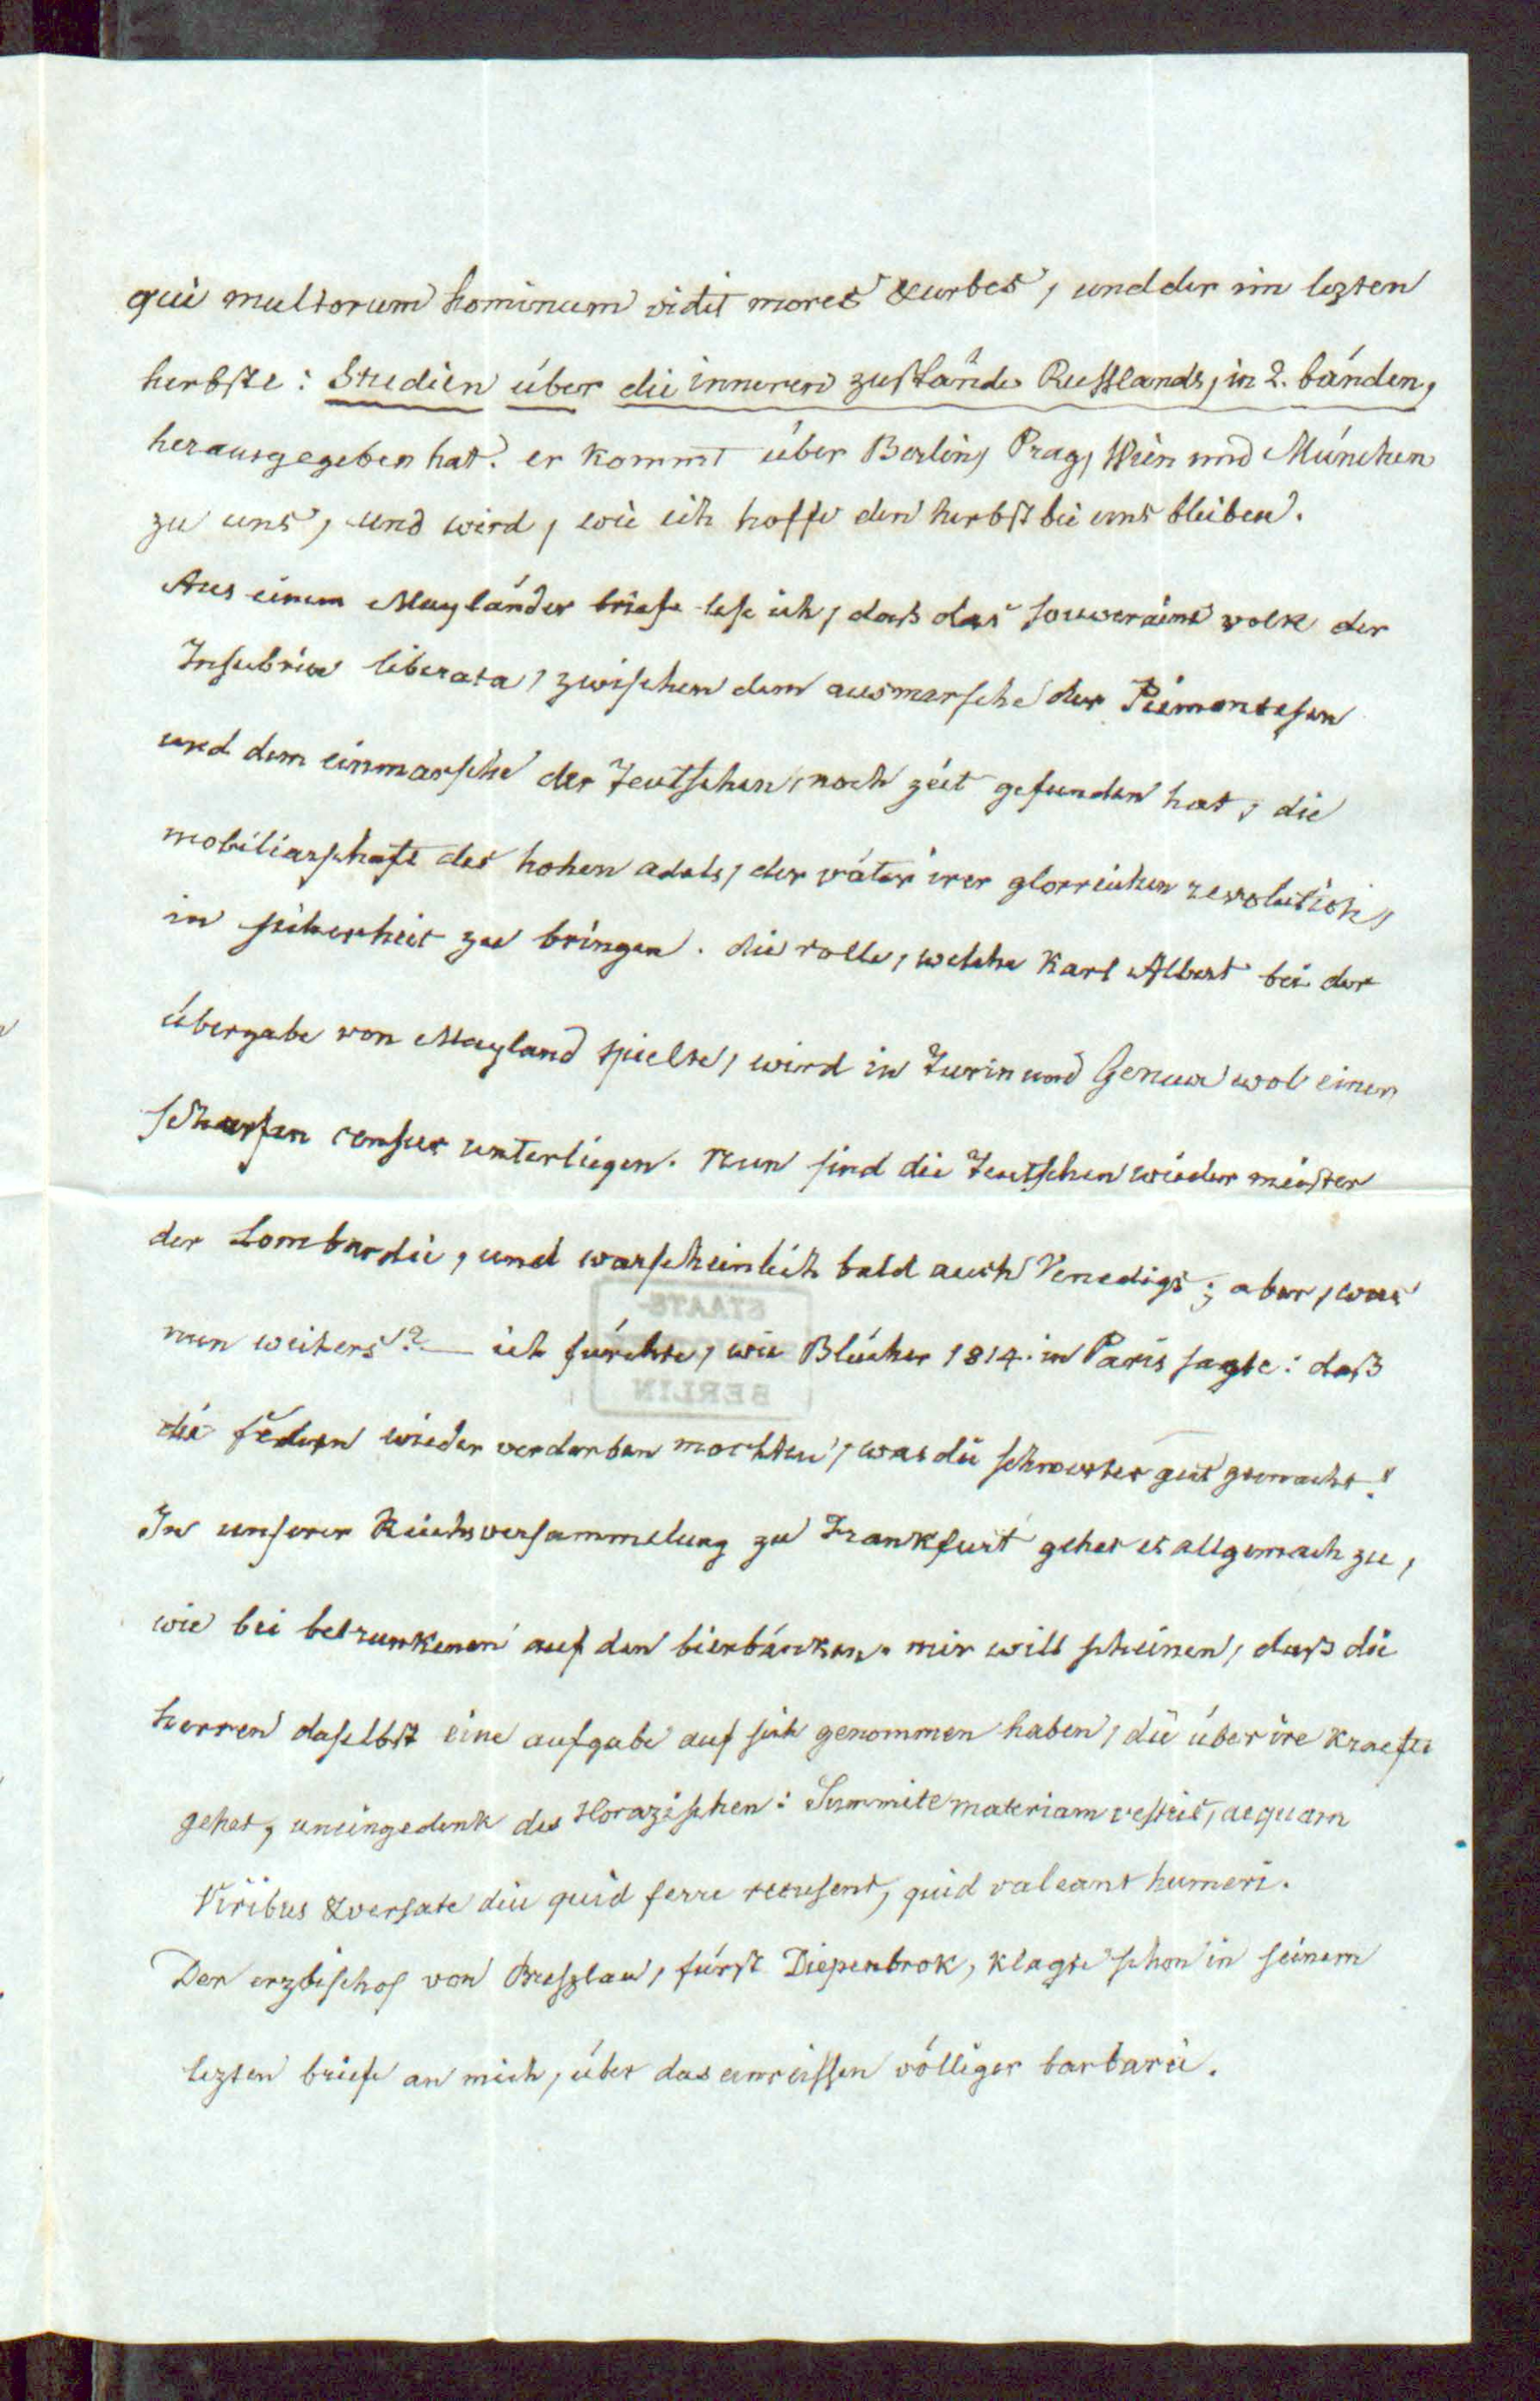 qui multorum hominum vidit mores & urbes, und der im lezten
herbste: Studien über die inneren zustände Russlands, in 2. bänden,
herausgegeben hat. er kommt über Berlin, Prag, Wien und München
zu uns, und wird, wie ich hoffe den herbst bei uns bleiben.
Aus einem Mayländer briefe lese ich, daß das souveraine volk der
Insubria liberata, zwischen dem ausmarsche der Piemontesen
und dem einmarsche der Teutschen, noch zeit gefunden hat, die
mobiliarschaft des hohen adels, der väter irer glorreichen revolution,
in sicherheit zu bringen. die rolle, welche Karl Albert bei der
übergabe von Mayland spielte, wird in Turin und Genua wol einer
scharfen censur unterliegen. Nun sind die Teutschen wieder meister
der Lombardie, und warscheinlich bald auch Venedigs; aber, was
nun weiters? — ich fürchte, wie Blücher 1814. in Paris sagte: daß
die federn wieder verderben mochten, was die schwerter gut gemacht!
In unserer Reichsversammelung zu Frankfurt gehet es allgemach zu,
wie bei betrunkenen auf den bierbänken. mir will scheinen, daß die
herren daselbst eine aufgabe auf sich genommen haben, die über ire kraefte
gehet, uneingedenk des Horazischen: Summite materiam vestris, aequam
Viribus & versate diu quid ferre recusent, quid valeant humeri.
Der erzbischof von Breszlau, fürst Diepenbrok, klagte schon in seinem
lezten briefe an mich, über das einreissen völliger barbarei.
STAATS-
BERLIN